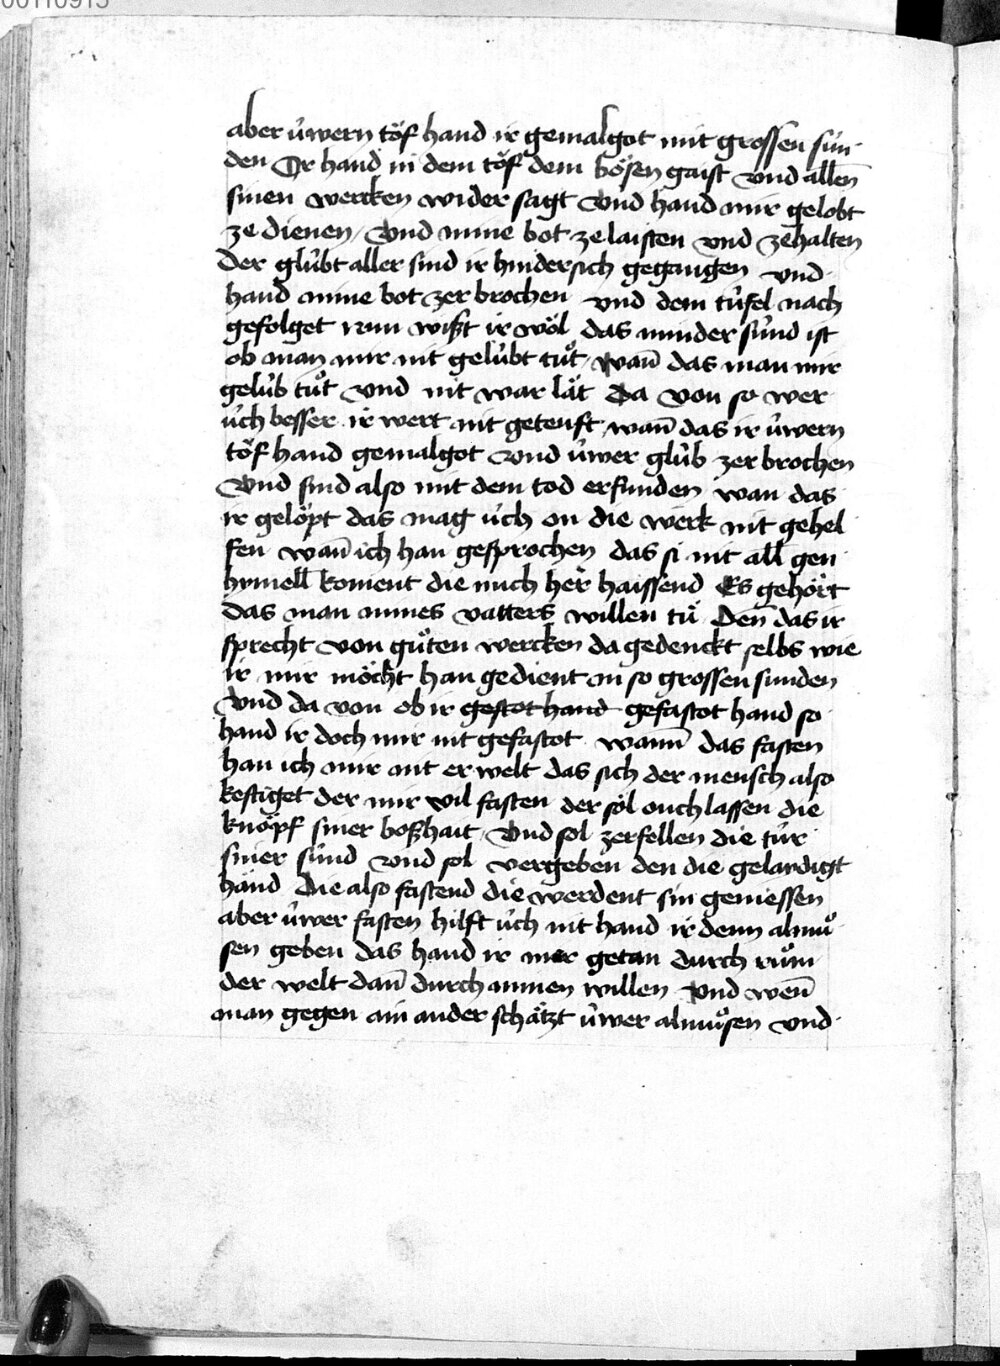 00110915
aber úwern töf hand ir gemalgot mit grossen sún
den Or hand in dem töf dem bösen gaist vnd allen̄
sinen wercken wider sagt vnd hand mir gelobt
ze dienen / vnd mine bot ze laisten vnd ze halten
der glúbt aller sind ir hindersich gegangen vnd
hand mine bot zerbrochen vnd dem túfel nach
gefolget nun wißt ir wöl das minder súnd ist
ob man mir nit gelúbt tuͦt / wan̄ das man mir
gelúb tuͦt vnd nit war lät Da von so wer
úch besser ir wert nit getenft / wan̄ das ir úwern
töf hand gemalgot vnd úwer glúb zerbrochen
Vnd sind also mit dem tod erfunden wan das
ir gelöpt das mag úch on die werk nit gehel
fen wan̄ ich han gesprochen das si nit all gen
hymell koment die mich her haissend Es gehört
das man mines vatters willen tü Den̄ das ir
sprecht von guͦten wercken da gedenckt selbs wie
ir mir möcht han gedient in so grossen sunden
Vnd da von ob ir gestot hand gefastot hand so
hand ir doch mir nit gefastot wann̄ das fasten
han ich mir nit erwelt das sich der mensch also
kestiget der mir wil fasten der söl ouch lassen die
knöpf siner boßhait / Vnd sol zerfellen die túr
siner súnd vnd sol vergeben den die gelaidigt
händ Die also fastend die werdent sin geniessen
aber úwer fasten hilft úch nit hand ir denn almuͦ
sen geben das hand ir mer getan durch ruͦm
der welt dan̄ durch minen willen Vnd wen̄
man gegen ain ander schätzt úwer almuͦsen vnd